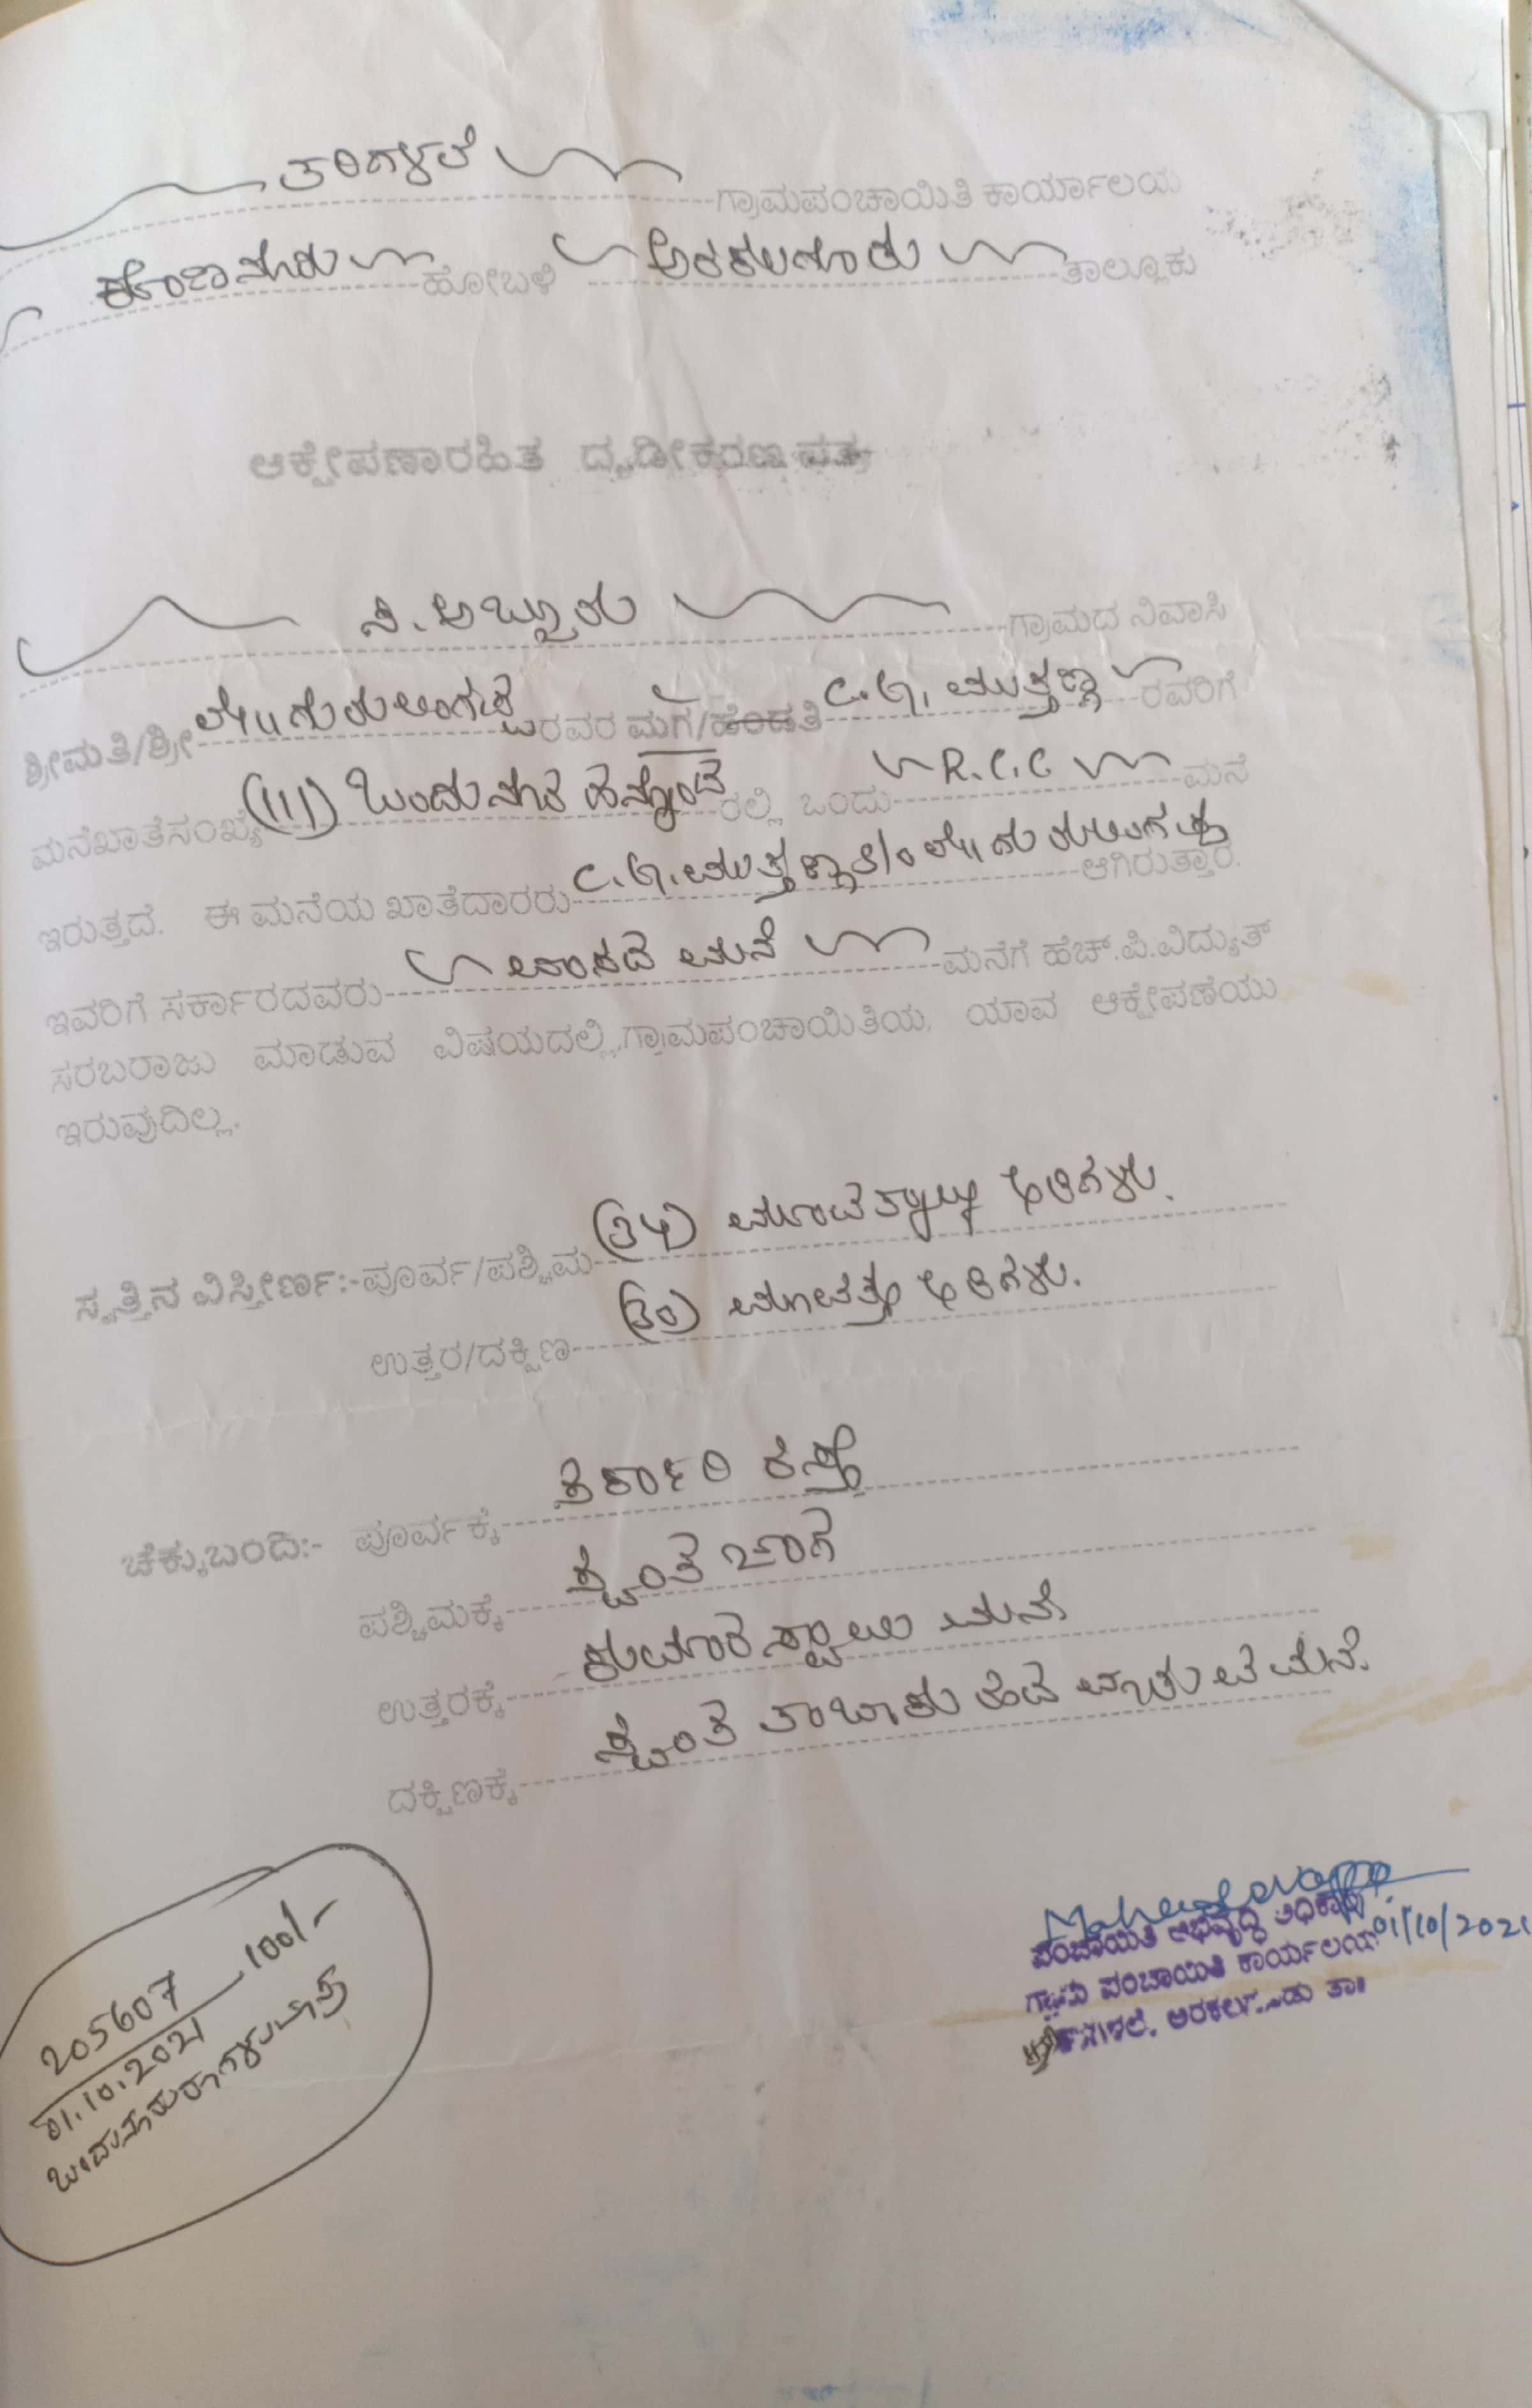 ತರಿಗಳಲೆ ಗ್ರಾಮಪಂಚಾಯಿತಿ ಕಾರ್ಯಾಲಯ
ಕೊಣನೂರು ಹೋಬಳಿ ಅರಕಲಗೂಡು ತಾಲ್ಲೂಕು
ಆಕ್ಷೇಪಣಾರಹಿತ ದೃಡೀಕರಣ ಪತ್ರ
ಸಿ.ಅಬ್ಬೂರು ಗ್ರಾಮದ ನಿವಾಸಿ
ಶ್ರೀಮತಿ/ಶ್ರೀ ಲೇ॥ ಗುರುಲಿಂಗಪ್ಪ ರವರ ಮಗ/ಹೆಂಡತಿ C.G. ಮುತ್ತಣ್ಣ ರವರಿಗೆ
ಮನೆಖಾತೆಸಂಖ್ಯೆ (111) ಒಂದುನೂರ ಹನ್ನೊಂದ ರಲ್ಲಿ ಒಂದು R.C.C ಮನೆ
ಇರುತ್ತದೆ. ಈ ಮನೆಯ ಖಾತೆದಾರರು C.G.ಮುತ್ತಣ್ಣ S/o ಲೇ॥ ಗುರುಲಿಂಗಪ್ಪ ಆಗಿರುತ್ತಾರೆ.
ಇವರಿಗೆ ಸರ್ಕಾರದವರು ವಾಸದ ಮನೆ ಮನೆಗೆ ಹೆಚ್.ಪಿ.ವಿದ್ಯುತ್
ಸರಬರಾಜು ಮಾಡುವ ವಿಷಯದಲ್ಲಿ ಗ್ರಾಮಪಂಚಾಯಿತಿಯ, ಯಾವ ಆಕ್ಷೇಪಣೆಯು
ಇರುವುದಿಲ್ಲ.
ಸ್ವತ್ತಿನ ವಿಸ್ತೀರ್ಣ:-ಪೂರ್ವ/ಪಶ್ಚಿಮ (34) ಮೂವತ್ನಾಲ್ಕು ಅಡಿಗಳು.
ಉತ್ತರ/ದಕ್ಷಿಣ (30) ಮೂವತ್ತು ಅಡಿಗಳು.
ಚೆಕ್ಕುಬಂದಿ:- ಪೂರ್ವಕ್ಕೆ ಸರ್ಕಾರಿ ರಸ್ತೆ
ಪಶ್ಚಿಮಕ್ಕೆ ಸ್ವಂತ ಜಾಗ
ಉತ್ತರಕ್ಕೆ ಕುಮಾರಸ್ವಾಮಿ ಮನೆ
ದಕ್ಷಿಣಕ್ಕೆ ಸ್ವಂತ ಮನೆ.
Maheshwarappa
ಪಂಚಾಯಿತಿ ಅಭಿವೃದ್ಧಿ ಅಧಿಕಾರಿ 01/10/2021
ಗ್ರಾಮ ಪಂಚಾಯಿತಿ ಕಾರ್ಯಲಯ
ಅರಕಲಗೂಡು ತಾ॥
205607 100/-
01.10.2021
ಒಂದುನೂರು ರೂಗಳು ಮಾತ್ರ